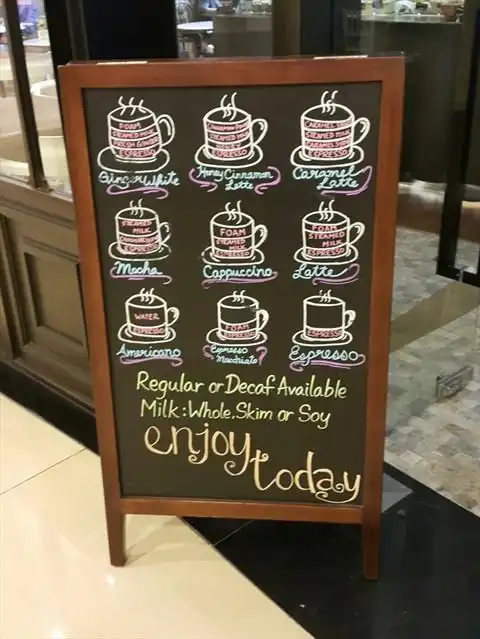 FOAM
STEAMED MILK
FRESH GINGER
ESPRESSO
Ginger White
STEAMED MILK
HONEY
ESPRESSO
Honey Cinnamon
Latte
STEAMED MILK
ESPRESSO
Caramel
Latte
STEAMED
MILK
ESPRESSO
Mocha
FOAM
STEAMED
MILK
ESPRESSO
Cappuccino
FOAM
STEAMED
MILK
ESPRESSO
Latte
WATER
ESPRESSO
Americano
FOAM
ESPRESSO
Espresso
Macchiato
ESPRESSO
Espresso
Regular or Decaf Available
Milk: Whole, Skim or Soy
enjoy
today